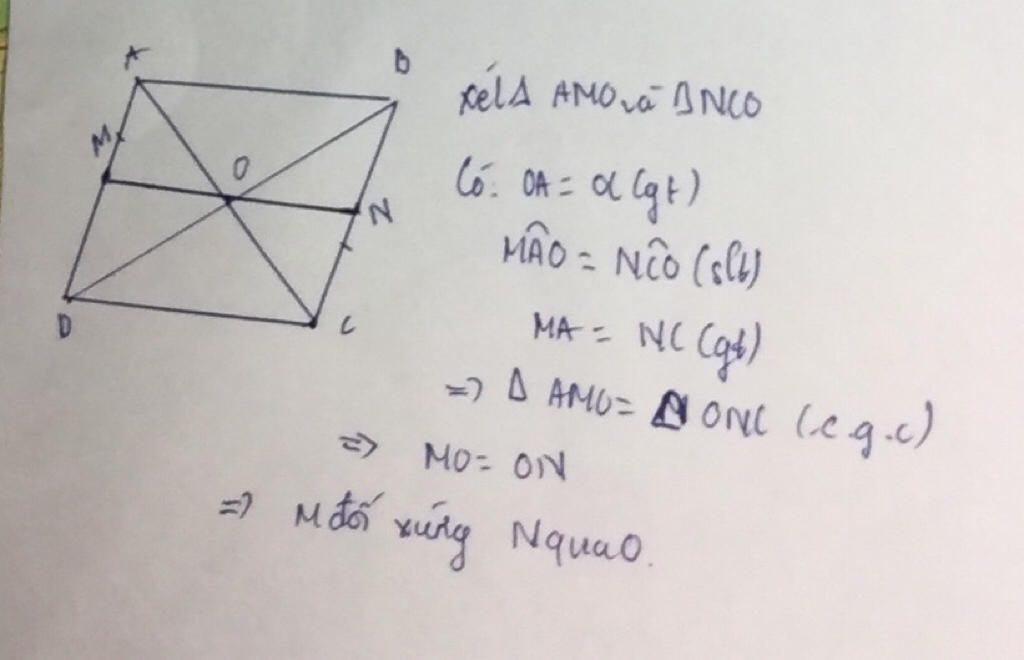 A
B
M
O
N
D
C
xét Δ AMO và Δ NCO
Có: OA = OC (gt)
MÂO = NĈO (slt)
MA = NC (gt)
=> Δ AMO = Δ ONC (.c.g.c)
=> MO = ON
=> M đối xứng N qua O.